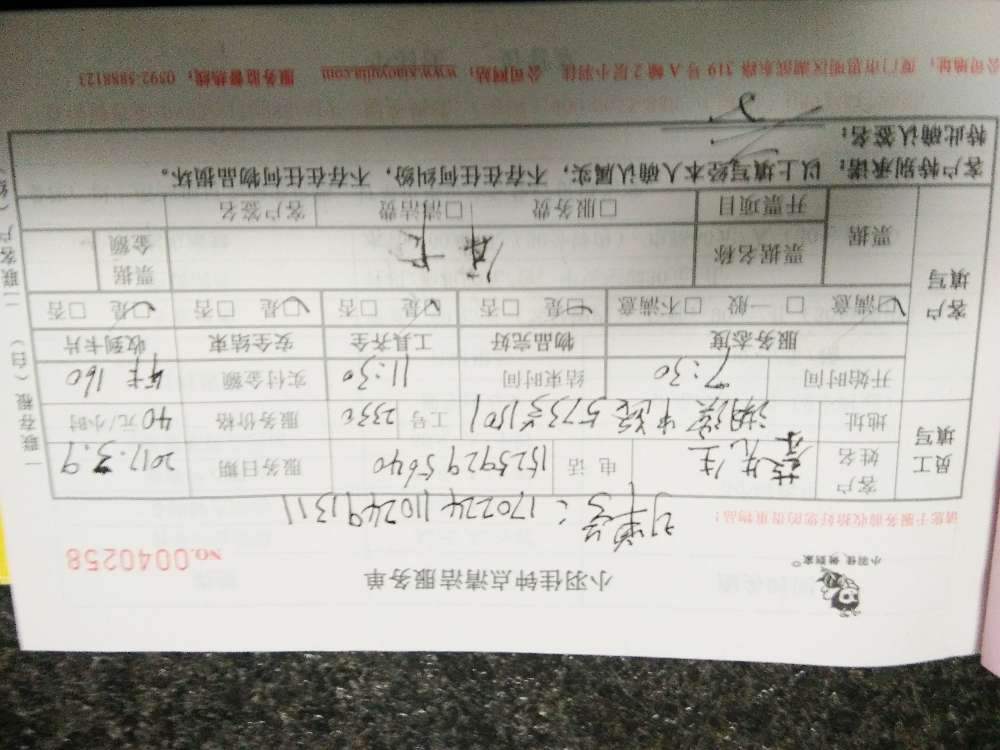 小羽佳钟点清洁服务单
小羽佳,做到家
NO.0040258
请您于服务前收拾好您的贵重物品!
订单号:17022411024913 11
员工填写
客户姓名 先生 电话 15259295640 服务日期 2017.3.9
地址 湖滨中路573号1501 工号 2350 服务价格 40元/小时
开始时间 7:30 结束时间 11:30 实付金额 160
客户填写
服务态度 物品完好 工具齐全 安全结束 收到卡片
☑满意 □一般 □不满意 ☑是 □否 ☑是 □否 ☑是 □否 ☑是 □否
票据 票据名称 票据金额
开票项目 □服务费 □清洁费 客户签名
客户特别承诺: 以上填写经本人确认属实,不存在任何纠纷,不存在任何物品损坏。
特此确认签名:
公司地址:厦门市思明区湖滨东路319号A幢2层小羽佳 公司网站:www.xiaoyujia.com 服务监督热线:0592-5888123
一联存根(白) 二联客户